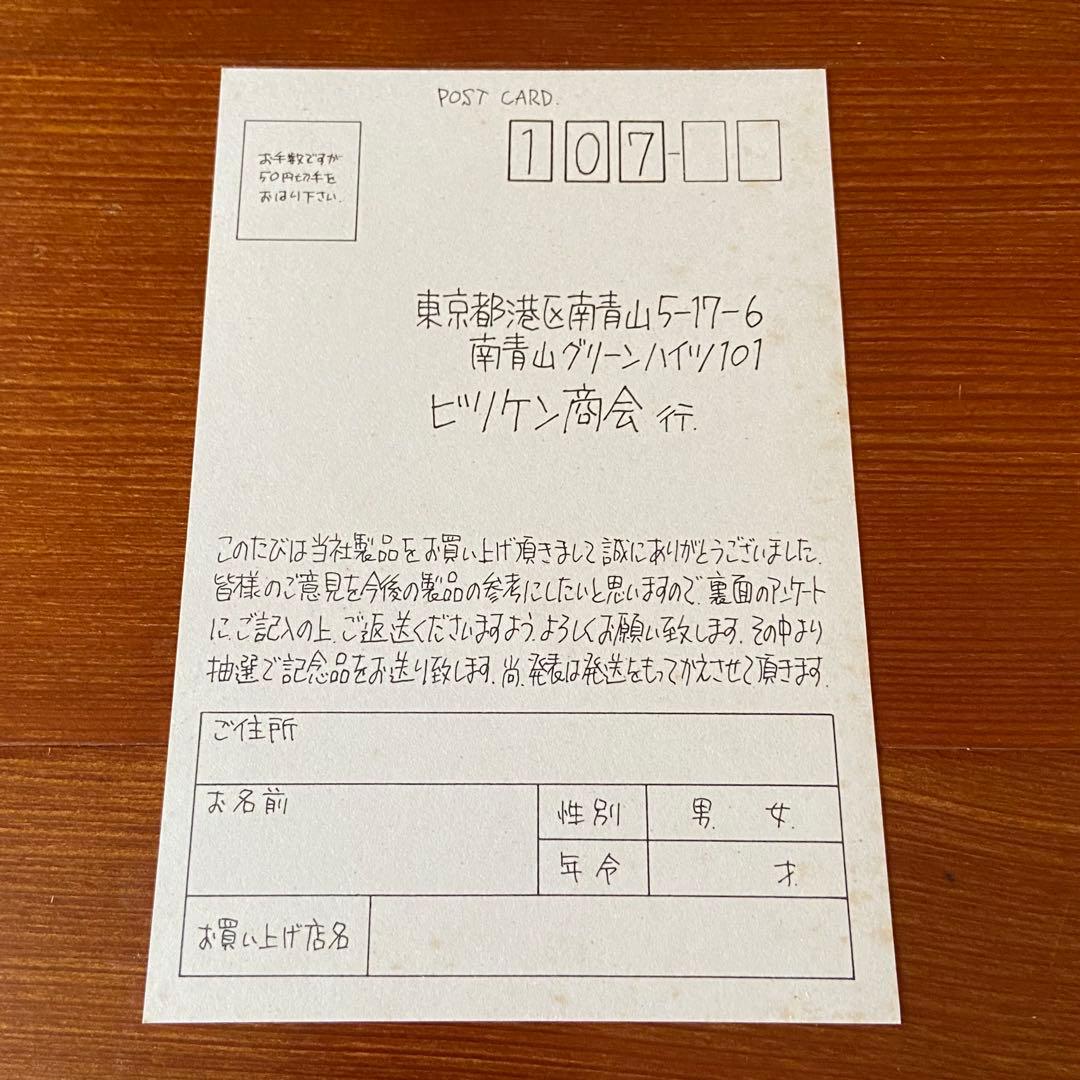 POST CARD.
お手数ですが
50円切手を
おはり下さい.
107-
東京都港区南青山5-17-6
南青山グリーンハイツ101
ビリケン商会 行.
このたびは当社製品をお買い上げ頂きまして誠にありがとうございました.
皆様のご意見を今後の製品の参考にしたいと思いますので、裏面のアンケート
に、ご記入の上、ご返送くださいますよう、よろしくお願い致します. その中より
抽選で記念品をお送り致します. 尚、発表は発送をもってかえさせて頂きます.
ご住所
お名前
性別 男. 女.
年令 才.
お買い上げ店名